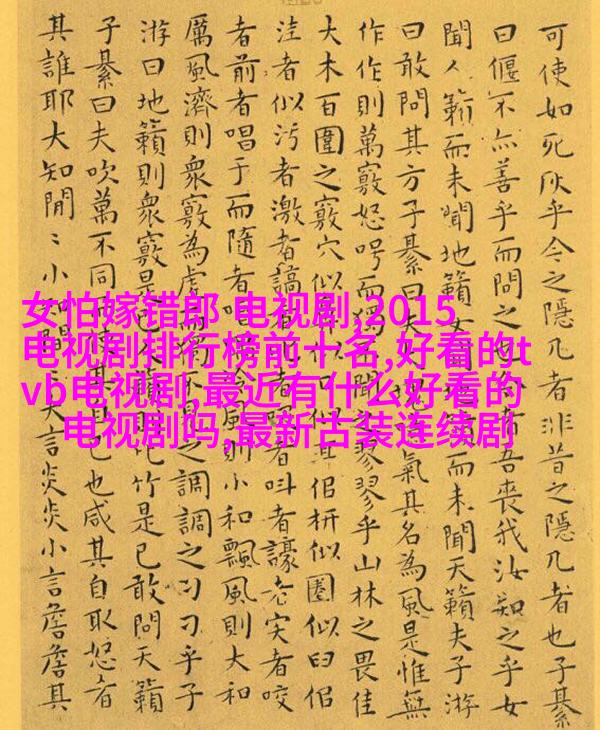 可使如死灰乎今之隱几者非昔之隱几者也子綦
曰偃不亦善乎而問之也 者吾喪我汝知之乎女
聞人籟而未聞地籟女 而未聞天籟夫子游
曰敢問其方子綦曰夫 氣其名為風是惟無
作作則萬竅怒呺而獨不 之翏翏乎山林之畏佳
大木百圍之竅穴似 佀枅似圈似臼佀
洼者似污者激者謞者 者叫者譹者宎者咬
者前者唱于而隨者唱 風則小和飄風則大和
厲風濟則衆竅為虛 不見之調調之刁刁乎子
游曰地籟則衆竅是 則比竹是已敢問天籟
子綦曰夫吹萬不同 使其 己也咸其自取怒者
其誰耶大知閒〻小知閒 大言炎炎小言詹詹其
女怕嫁错郎 电视剧,2015
电视剧排行榜前十名,好看的t
vb电视剧,最近有什么好看的
电视剧吗,最新古装连续剧